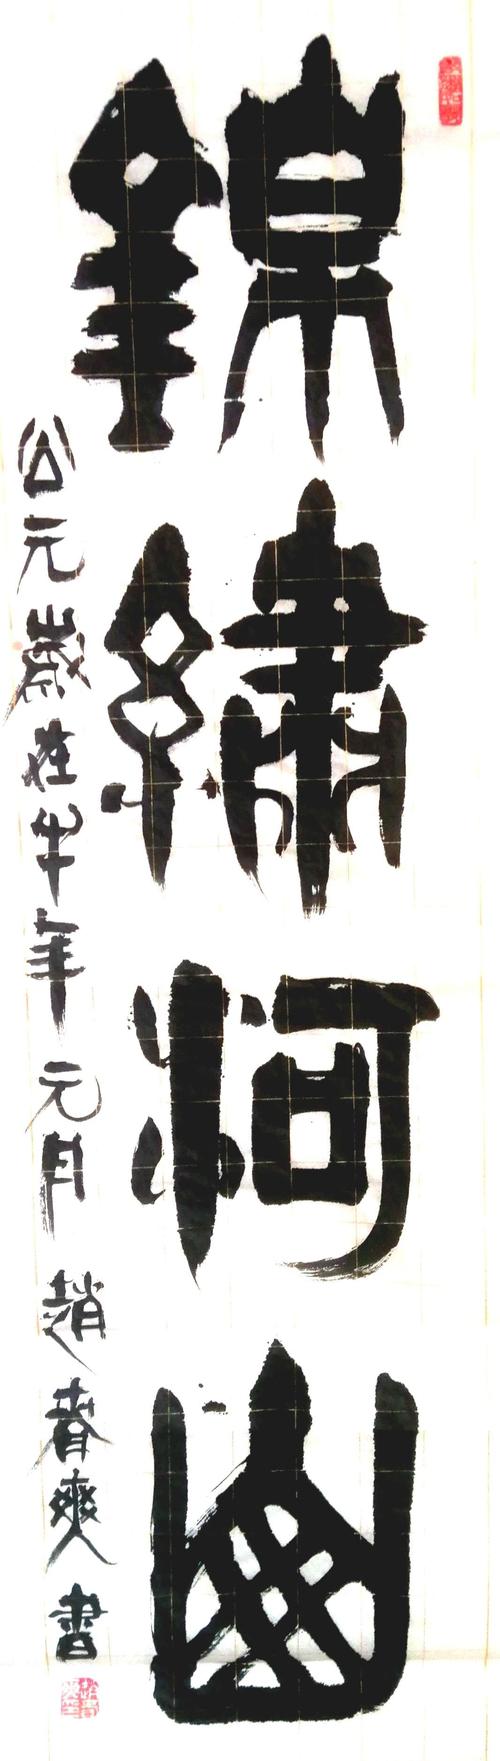 錦繡河山
公元歲在牛年元月趙春爽書